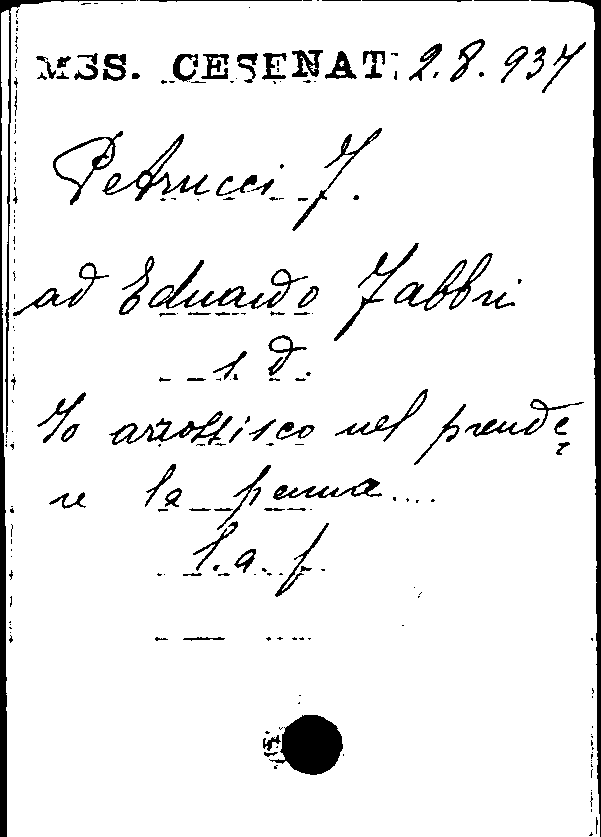 MSS. CESENAT. 2.8.937
Petrucci F.
ad Eduardo Fabbri
s. d.
Io arrossisco nel prende-
re la penna....
l. a. f.